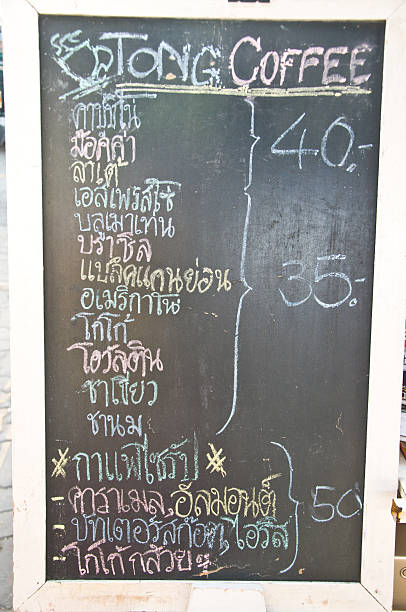 TONG COFFEE
คาปูชิโน่
ม๊อคค่า
ลาเต้
40.-
เอสเพรสโซ่
บลูเมาเท่น
บราซิล
แบล็คแคนย่อน
อเมริกาโน่
35.-
โกโก้
โอวัลติน
ชาเขียว
ชานม
* กาแฟไซรัป *
- คาราเมล, อัลมอนด์
50
- บัทเตอร์สก๊อต, ไอริส
- โกโก้กล้วย